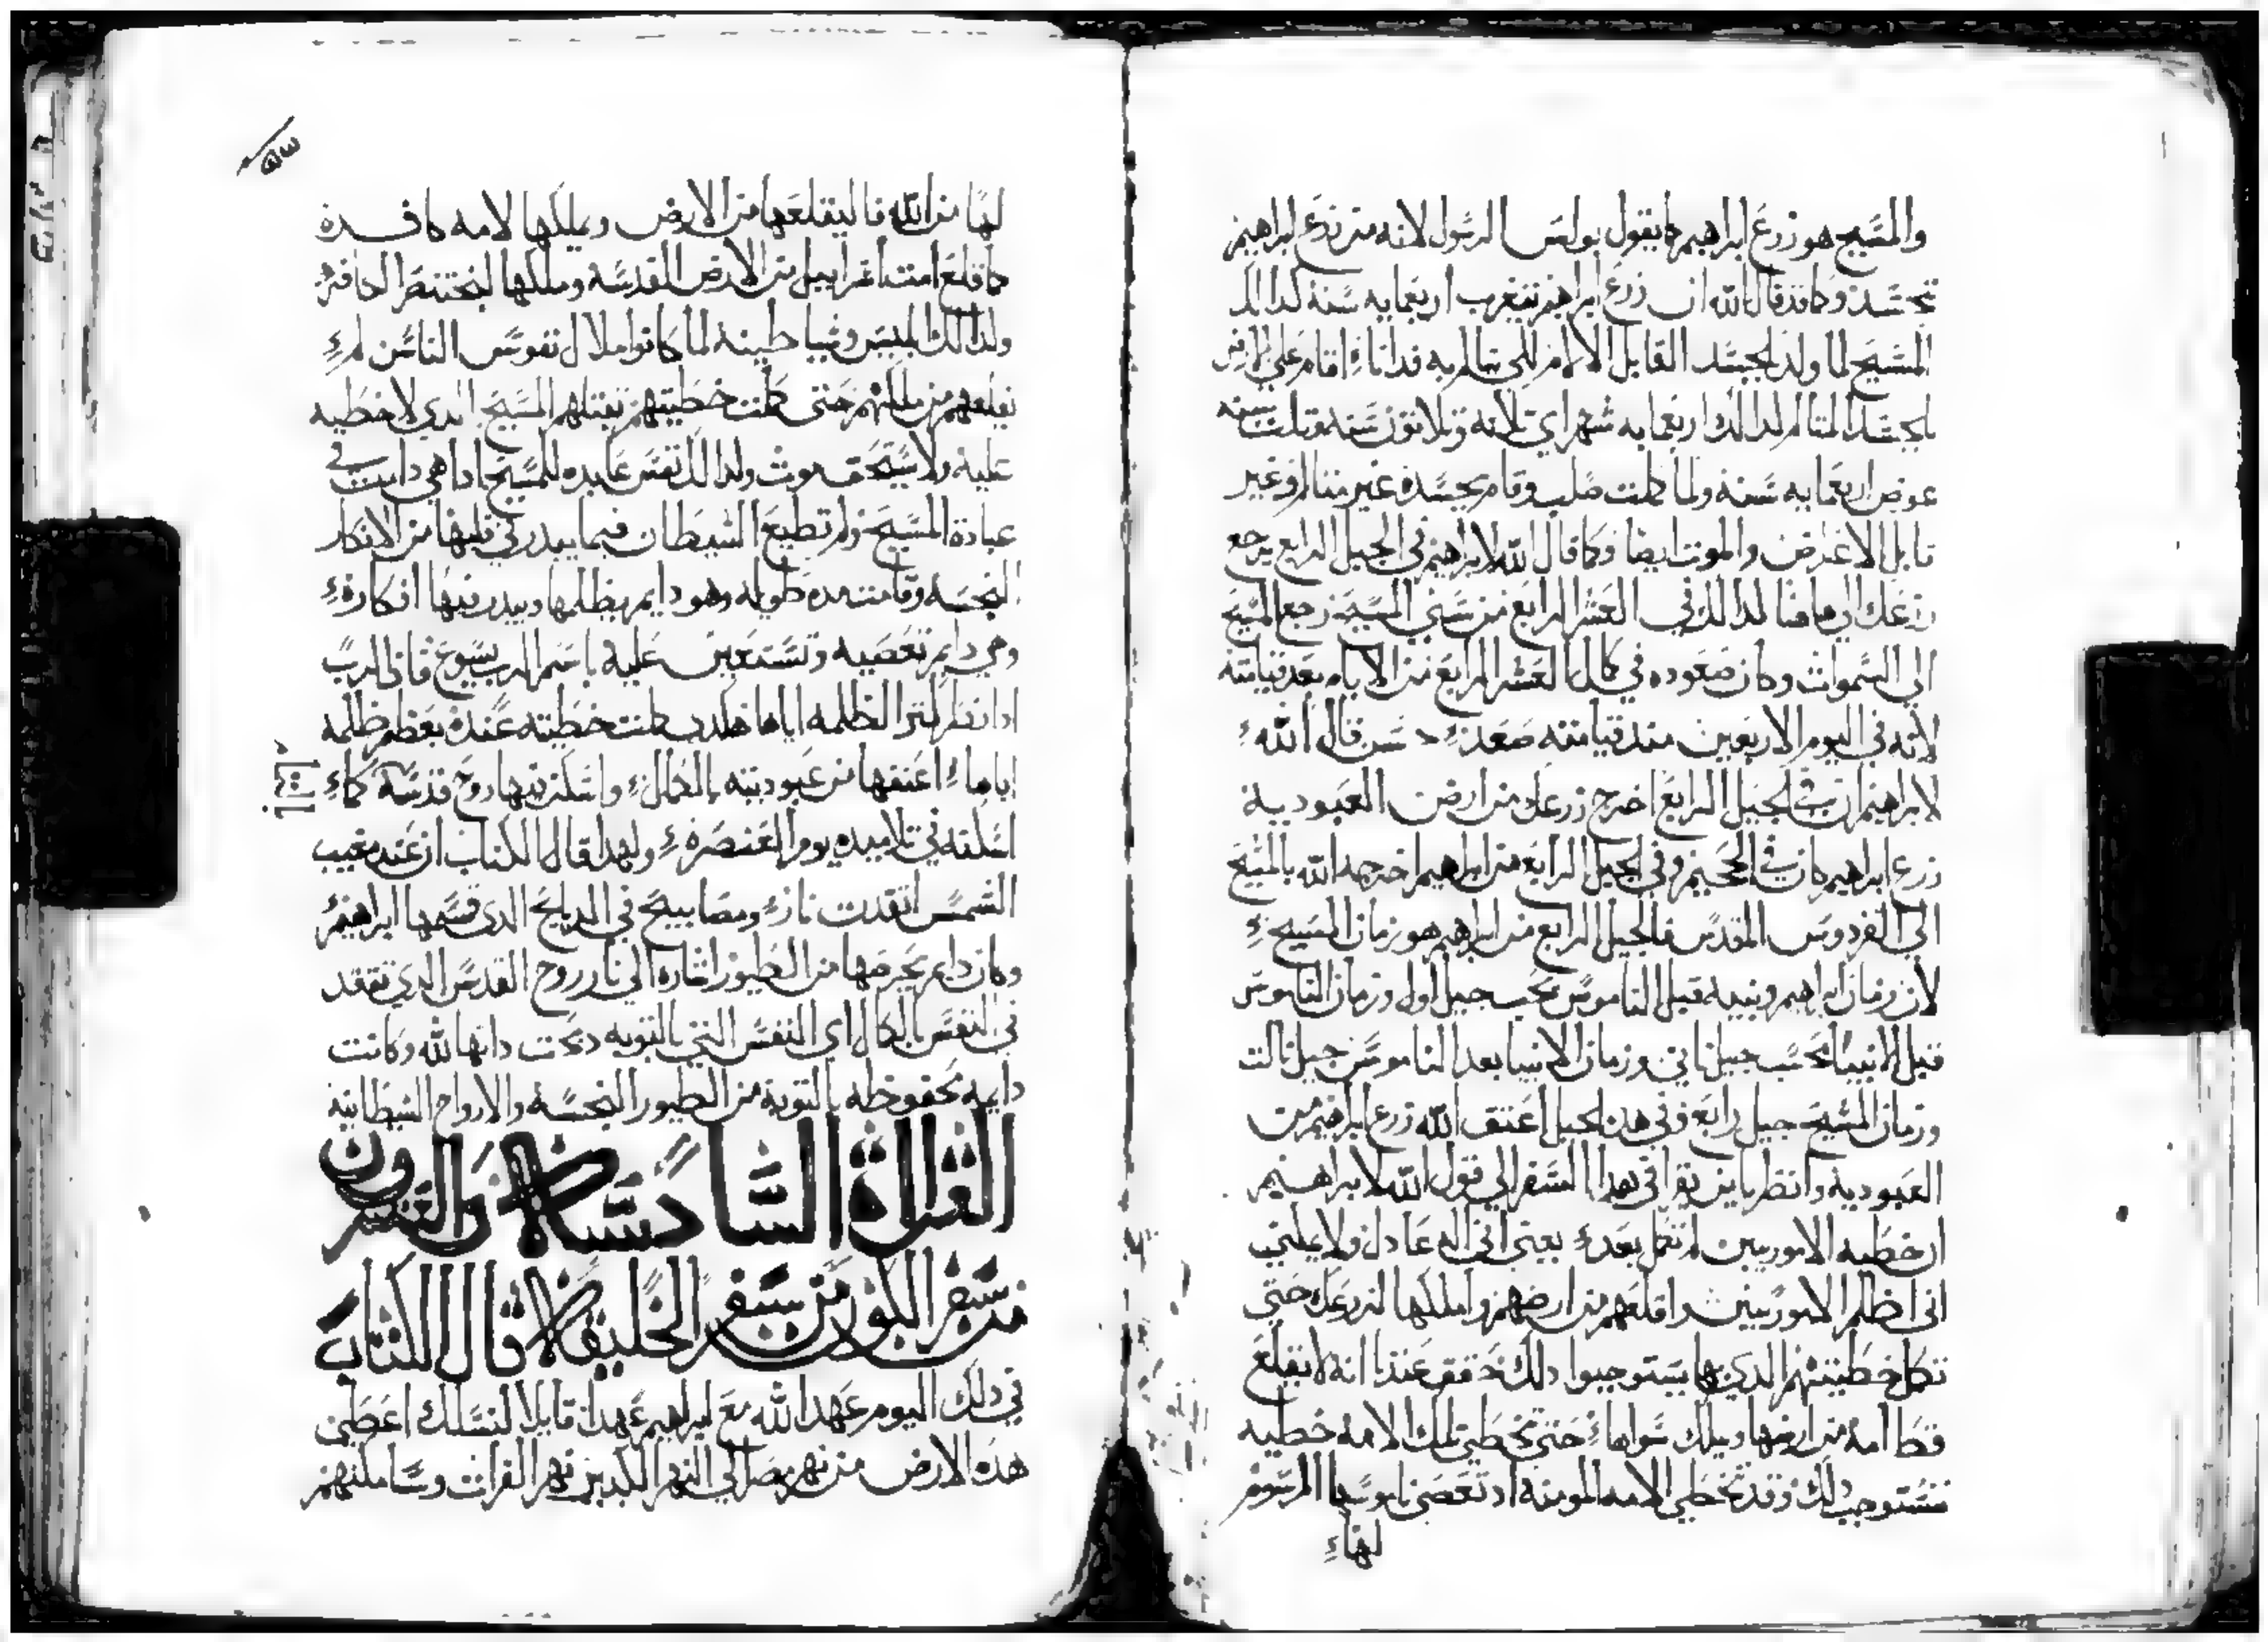 والمسيح هو زرع ابراهيم كما يقول بولس الرسول لانه من زرع ابراهيم
تجسد وكما قد قال الله ان زرع ابراهيم يتغرب اربعمايه سنة كدالك
المسيح لما ولد بجسد القابل الالام التي تالم به فدانا اقام علي الارض
بالجسد المتالم لدالك اربعمايه شهر اي تلاته وتلاتون سنه وتلت سنه
عوض اربعمايه سنه ولما كملت صلب وقام بجسده غير متالم وغير
قابل الاعراض والموت ايضا وكما قال الله لابراهيم في الجيل الرابع يرجع
زرعك الي هاهنا لدالك في العشر الرابع من سني المسيح رجع المسيح
الي السموات وكان صعوده في كمال العشر الرابع من الايام بعد قيامته
لانه في اليوم الاربعين مند قيامته صعد قال الله
لابراهيم ان في الجيل الرابع اخرج زرعك من ارض العبودية
زرع ابراهيم كان في الجحيم وفي الجيل الرابع من ابراهيم اخرجه الله بالمسيح
الي الفردوس المقدس فالجيل الرابع من ابراهيم هو زمان المسيح
لان زمان ابراهيم وبنيه قبل الناموس يحسب جيل اول وزمان الناموس
قبل الانبيا يحسب جيل تاني وزمان الانبيا بعد الناموس جيل تالت
وزمان المسيح جيل رابع وفي هدا الجيل اعتق الله زرع ابراهيم من
العبودية وانظر يا من يقرا في هدا السفر الي قول الله لابراهيم
ان خطية الاموريين لم تكمل بعد يعني اني اله عادل ولا يمكني
اني اظلم الاموريين واقلعهم من ارضهم واملكها لزرعك حتي
تكمل خطيتهم الدي بها يستوجبوا دلك عندنا انه لا يقلع
قط امة من ارضها ويملك سواها حتي تخطي تلك الامه خطيه
تستوجب دلك وقد تخطي الامه المومنه اد تعصي ناموسها المرسوم
لها
لها من الله فاليقلعها من الارض ويملكها لامه كافره
كما قلع امت اسراييل من الارض المقدسه وملكها لبختنصر الكافر
ولدالك ابليس وشياطينه لما كانوا ملاك نفوس الناس لم
يقلعهم من ملكهم حتي كملت خطيتهم بقتلهم المسيح الدي لا خطيه
عليه ولا يستحق موت ولدالك نفس عابده للمسيح ادا هي دامت في
عبادة المسيح ولم تطيع الشيطان فيما يبدر في قلبها من الافكار
النجسه وقامت مده طويله وهو دايم يظلمها ويبدر فيها افكاره
وهي دايم تعصيه وتستعين عليه باسم الرب يسوع فان الرب
ادا نظر كترا لظلمه اياها كملت خطيته عنده بعظم ظلمه
اياها اعتقها من عبوديته بالكمال واسكن فيها روح قدسه كما
اسكنه في تلاميده يوم العنصره ولهدا قال الكتاب ان عند مغيب
الشمس اتقدت نار ومصابيح في الدبايح الدي قسمها ابراهيم
وكان دايم يحرصها من الطيور اشاره الي نار روح القدس الدي تتقد
في النفس بالكمال اي النفس التي بالتوبه دبحت داتها لله وكانت
دايمه محفوظه بالتوبة من الطيور النجسه والارواح الشيطانيه
القراة السادسة والعشرون
من سفر التكوين من سفر الخليقة قال الكتاب
في دلك اليوم عهد الله مع ابراهيم عهدا قايلا لنسلك اعطي
هده الارض من نهر مصر الي النهر الكبير نهر الفرات وساملكهم